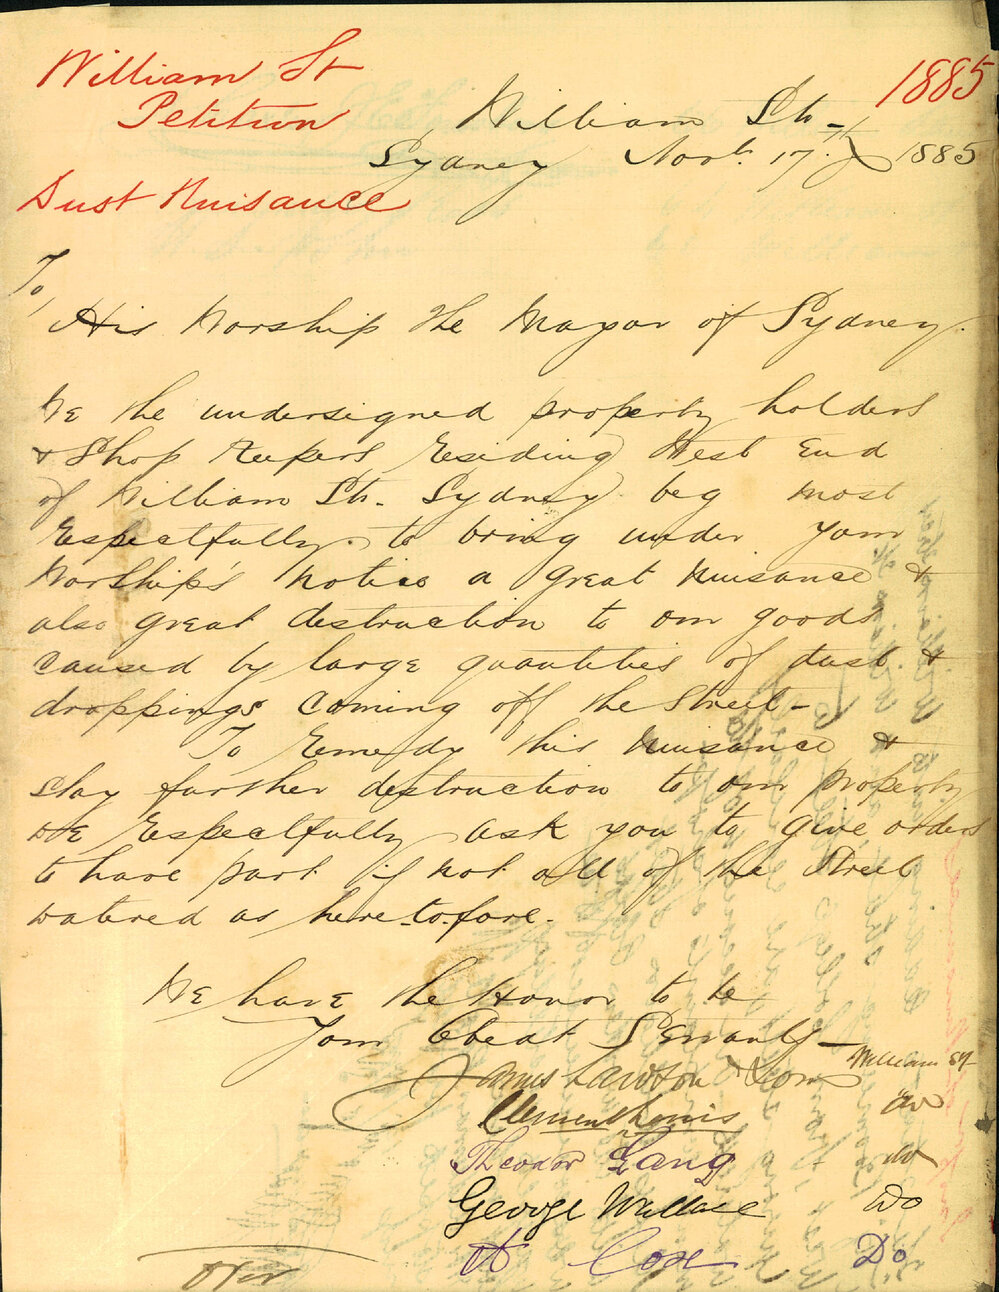 William St
Petition
1885
William St.
Sydney Novb. 17th 1885
Dust Nuisance
To,
His Worship the Mayor of Sydney.
We the undersigned property holders
& Shop Keepers Residing West End
of William St. Sydney beg most
Respectfully to bring under your
Worships notice a great nuisance &
also great destruction to our goods
caused by large quantities of dust &
droppings coming off the street -
To Remedy this nuisance &
stay further destruction to our property
we Respectfully ask you to give orders
to have part if not all of the Street
watered as here.to.fore.
We have the Honor to be
Your Obeat Servants -
James Lawson & Sons William St
Clement do
Theodor Lang do
George Wallace Do
H Cox Do
Over